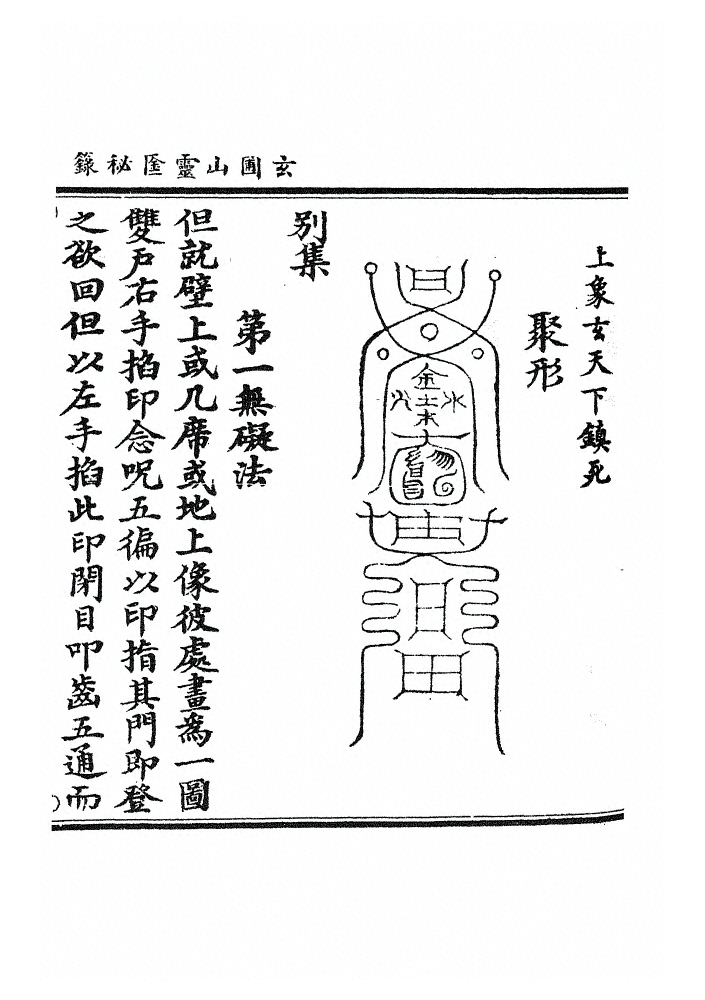 玄圃山靈匧秘籙
上象玄天下鎮死
聚形
金
水土火
木
別集
第一無礙法
但就壁上或几席或地上像彼處畫為一圖
雙戶右手掐印念呪五徧以印指其門即登
之欲回但以左手掐此印閉目叩齒五通而